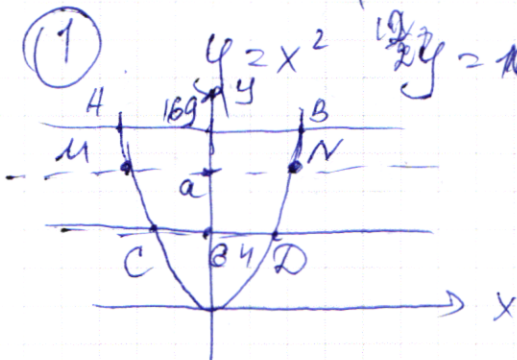 1 y = x²
y
A 169 B
M N
a
C 64 D
x